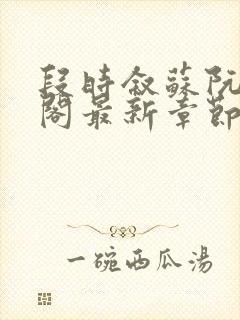 段時敘蘇阮
閣最新章節
一碗西瓜湯